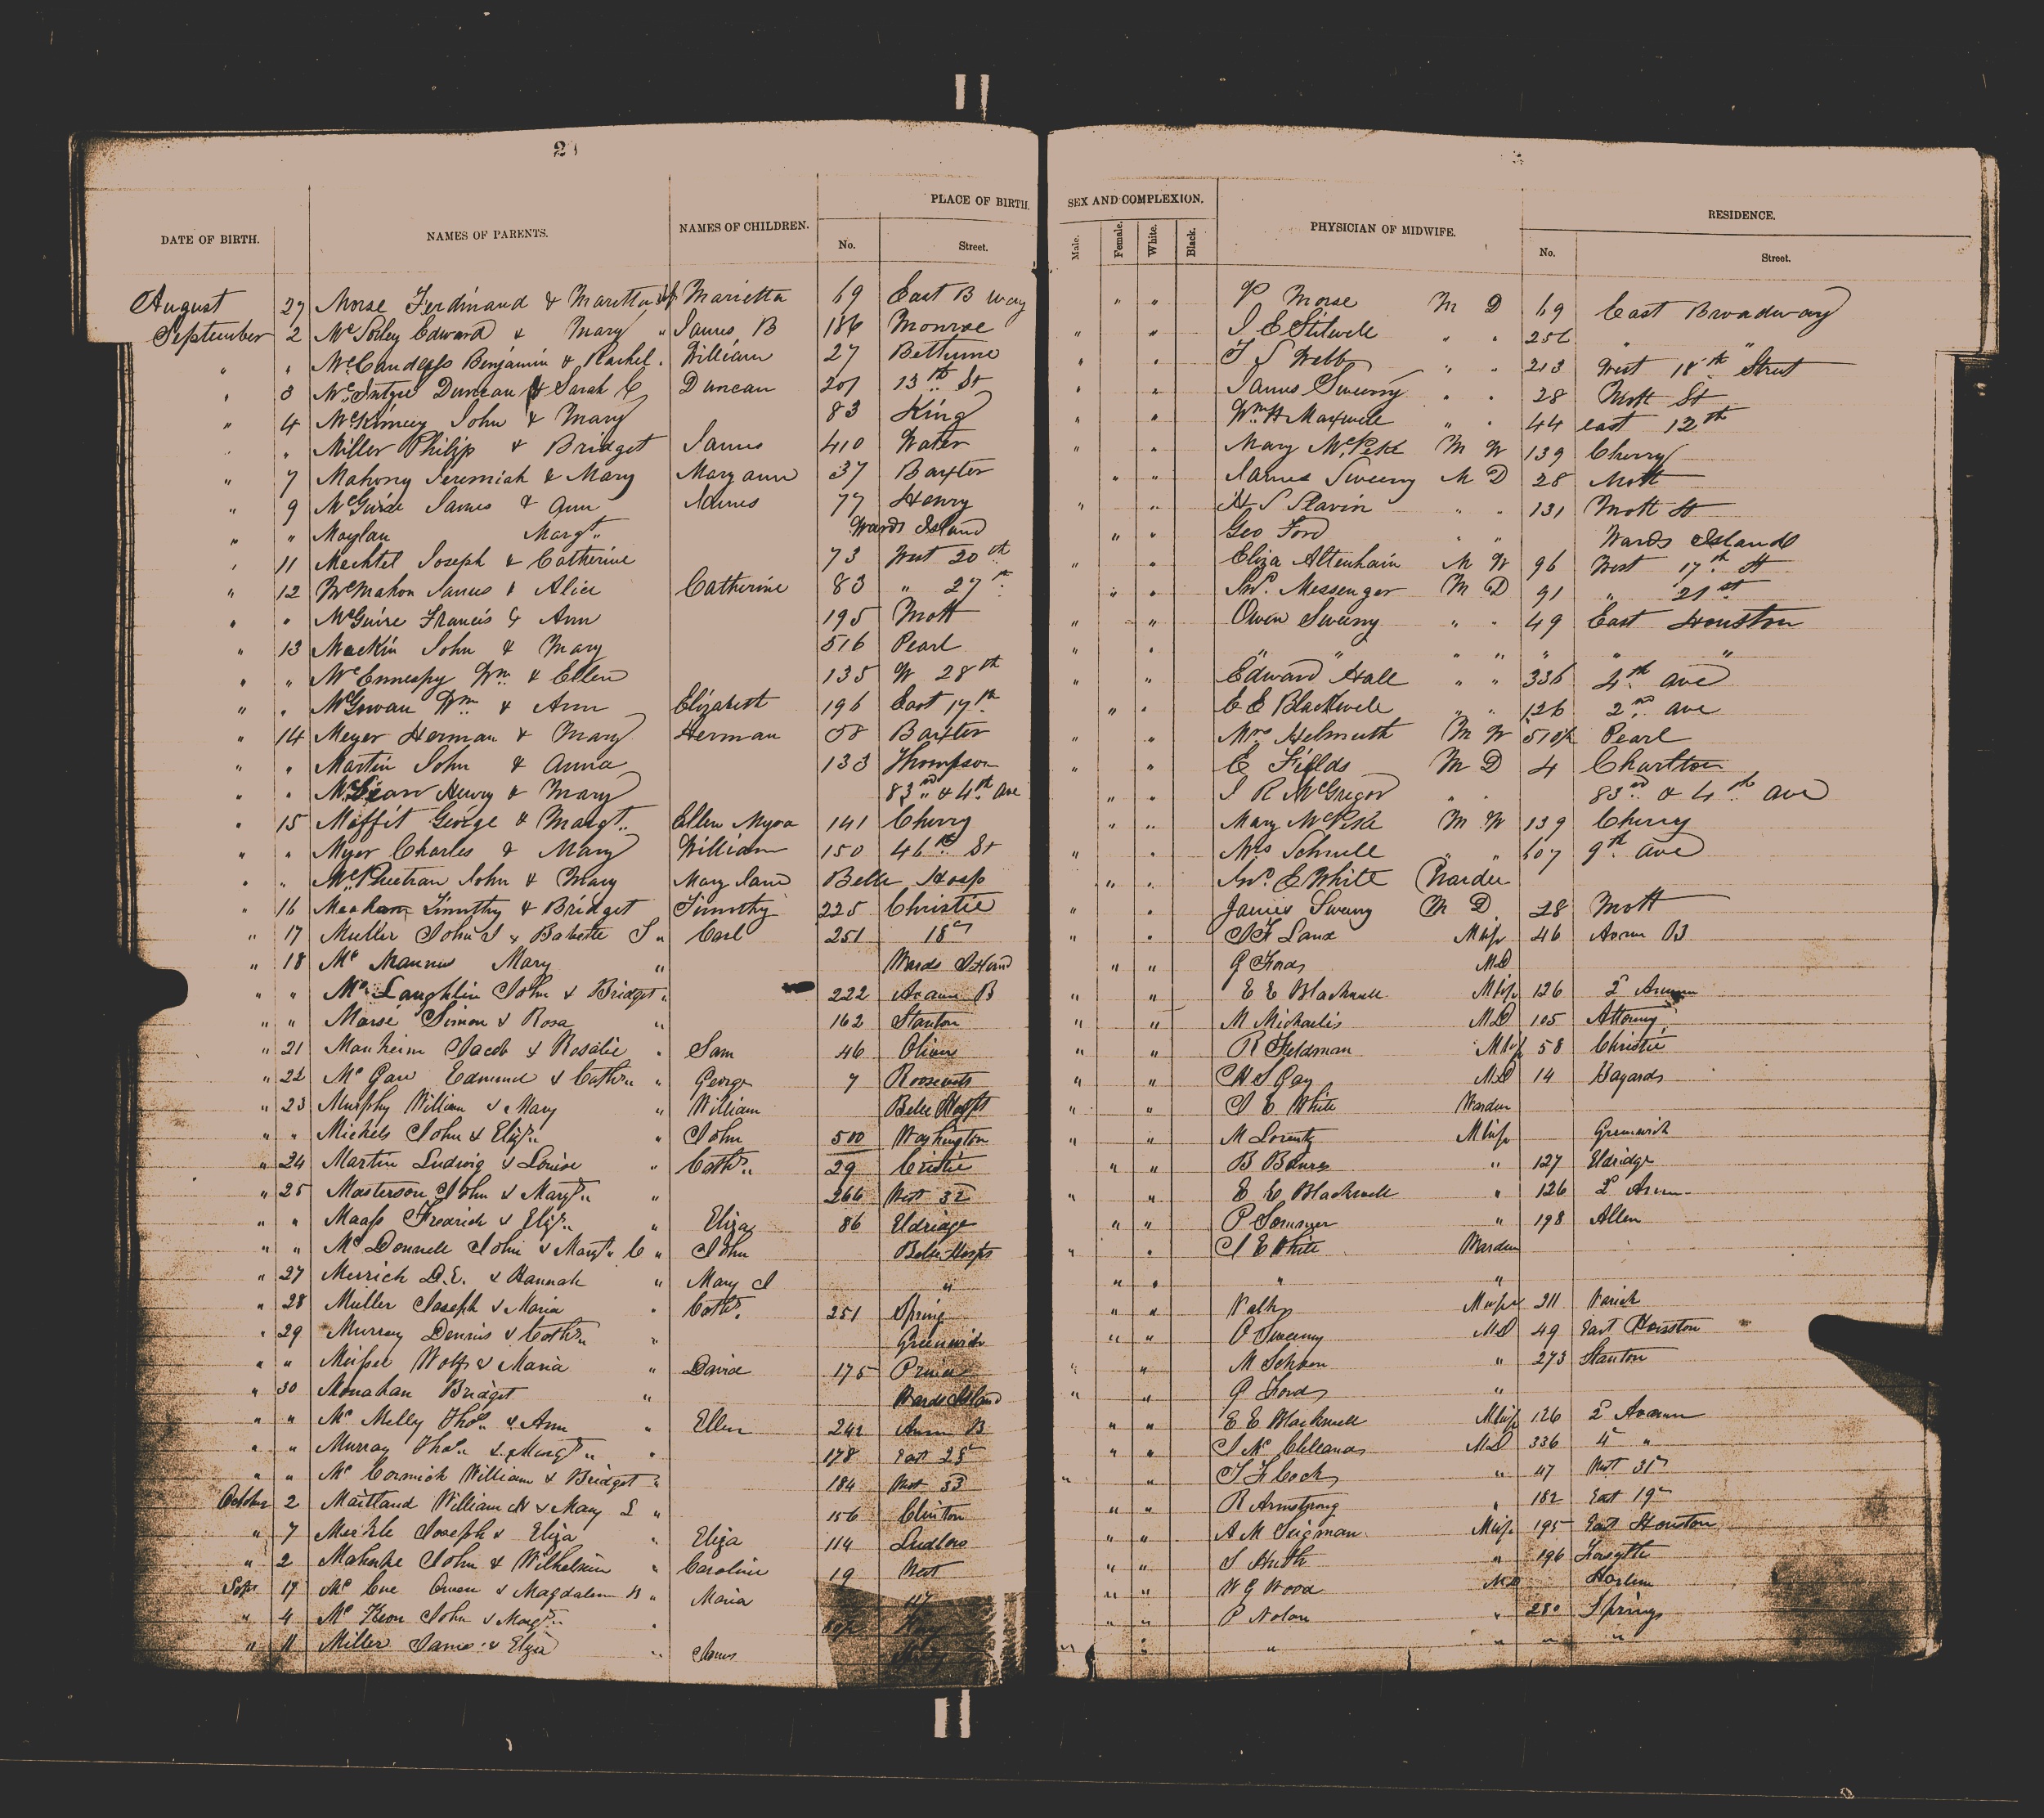 21
DATE OF BIRTH. NAMES OF PARENTS. NAMES OF CHILDREN. PLACE OF BIRTH. No. Street. SEX AND COMPLEXION. Male. Female. White. Black. PHYSICIAN OF MIDWIFE. RESIDENCE. No. Street.
August 27 Morse Ferdinand & Maretta wf Marietta 69 East B way " " P Morse M D 69 East Broadway
September 2 Edward & Mary " James B 186 Monroe " " J E Stilwell " " 256 " "
" " McCandless Benjamin & Rachel " William 27 Bethune " " T S Webb " " 213 West 18th Street
" 3 McIntyre Duncan & Sarah C Duncan 201 13th St " " James Sweeny " " 28 Mott St
" 4 McKinney John & Mary 83 King " " Wm H Maxwell " " 44 east 12th
" " Miller Philip & Bridget James 410 Water " " Mary McPeke M W 139 Cherry
" 7 Mahony Jeremiah & Mary Mary ann 37 Baxter " " James Sweeny M D 28 Mott
" 9 McGuire James & Ann James 77 Henry " " H S Slavin " " 131 Mott St
" " Moylan Margt Wards Island " " Geo Ford " " Wards Island
" 11 Mechtel Joseph & Catherine 73 West 20th " " Eliza Altenhain M W 96 West 17th St
" 12 McMahon James & Alice Catherine 83 " 27th " " Jno Messenger M D 91 " 21st
" " McGuire Francis & Ann 195 Mott " " Owen Sweeny " " 49 East Houston
" 13 Mackin John & Mary 516 Pearl " " " " " " " " "
" " McEnnespy Wm & Ellen 135 W 28th " " Edward Hall " " 336 4th ave
" " McGowan Wm & Ann Elizabeth 196 East 17th " " E E Blackwell " " 126 2nd ave
" 14 Meyer Herman & Mary Herman 58 Baxter " " Mrs Helmuth M W 510½ Pearl
" " Martin John & Anna 133 Thompson " " C Fields M D 4 Charlton
" " Henry & Mary 83rd & 4th Ave " " J R McGregor " " 83rd & 4th ave
" 15 Moffit George & Margt Ellen Myra 141 Cherry " " Mary McPeke M W 139 Cherry
" " Myer Charles & Mary William 150 46th St " " Mrs Schnell " " 607 9th ave
" " John & Mary Mary Jane Belle Hosp " " Jno E White Warden
" 16 Timothy & Bridget Timothy 225 Christie " " James Sweeny M D 28 Mott
" 17 Muller John J & Babette S " Carl 251 18" " " Midw 46 Avenue B
" 18 Mc Manus Mary " Wards Island " " G Ford MD
" " Mc Laughlin John & Bridget " 222 Avenue B " " E E Blackwell Midw 126 2d Avenue
" " Marse Simon & Rosa " 162 Stanton " " M Michaelis MD 105 Attorney
" 21 Manheim Jacob & Rosalie " Sam 46 Oliver " " R Feldman Midw 58 Christie
" 22 Mc Gaw Edmund & Cathr " George 7 Roosevelt " " H S Gay MD 14 Bayards
" 23 Murphy William & Mary " William Belle Hosps " " J E White Warden
" " Michels John & Eliz " John 500 Washington " " M Lorentz Midw Greenwich
" 24 Martin Ludwig & Louise " Cathr 29 Cristie " " B Baures " 127 Eldridge
" 25 Masterson John & Margt " 266 West 32 " " E E Blackwell " 126 2d Avenue
" " Maass Fredrich & Eliz " Eliza 86 Eldridge " " P Sommer " 198 Allen
" " Mc Donnell John & Margt C " John Belle Hosps " " J E White Warden
" 27 Merrich D. E. & Hannah " Mary J " " " " "
" 28 Muller Joseph & Maria " Cathr 251 Spring " " Midw 211 Varick
" 29 Murray Dennis & Cathr " Greenwich " " O Sweeny MD 49 East Houston
" " Wolf & Maria " David 175 Prince " " M Schoen " 273 Stanton
" 30 Monahan Bridget " Wards Island " " G Ford "
" " Mc Melly Thos & Ann " Ellen 242 Avenue B " " E E Blackwell Midw 126 2d Avenue
" " Murray Thos & Margt " 178 East 28" " " J Mc Clelland MD 336 4 "
" " Mc Cormick William & Bridget " 184 West 33 " " T F Cock " 47 West 31"
October 2 Maitland William H & Mary E " 156 Clinton " " R Armstrong " 182 East 19"
" 7 Joseph & Eliza " Eliza 114 Ludlow " " A M Seigman Midw 195 East Houston
" 2 Mahnke John & Wilhelmin " Caroline 19 West " " J Huth " 196 Forsyth
Sepr 19 Mc Cue Owen & Magdalen N " Maria 117 " " W G Wood MD Harlem
" 4 Mc Keon John & Margt " King " " P Nolan " 280 Springs
" 11 Miller James & Eliza " James " " " " " "